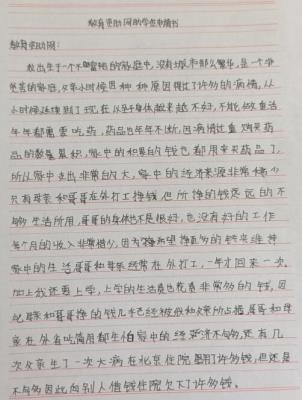 教育资助网助学金申请书
教育资助网:
我出生于一个不富裕的家庭中,没有城市那么繁华,是一个争
贫苦的家庭,父亲小时候因种种原因得了许多的病情,从
小时候延续到了现在,以至身体越来越不好,不能做重活
年年都需要吃药,药品也年年不断,因病情过重购买药
品的数量累积,家中的积累的钱也都用来买药品了,
所以家中支出非常的大,家中的经济来源非常稀少
只有母亲和哥哥在外打工挣钱但所挣的钱还远的不
够生活所用,哥哥的身体也不是很好,也没有好的工作
每个月的收入非常微少,因为挣希望挣更多的钱来维持
家中的生活哥哥和母亲经常在外打工,一年才回来一次.
加上我还要上学,上学的生活费也花费非常多的钱,因
此母亲和哥哥挣的钱几乎已经被我和父亲所占据哥哥和母
亲在外省吃简用都生怕家中的经济不够,还有几
次父亲生了一次大病在北京住院、用了许多钱,但还是
不够因此向别人借钱住院欠下了许多钱。